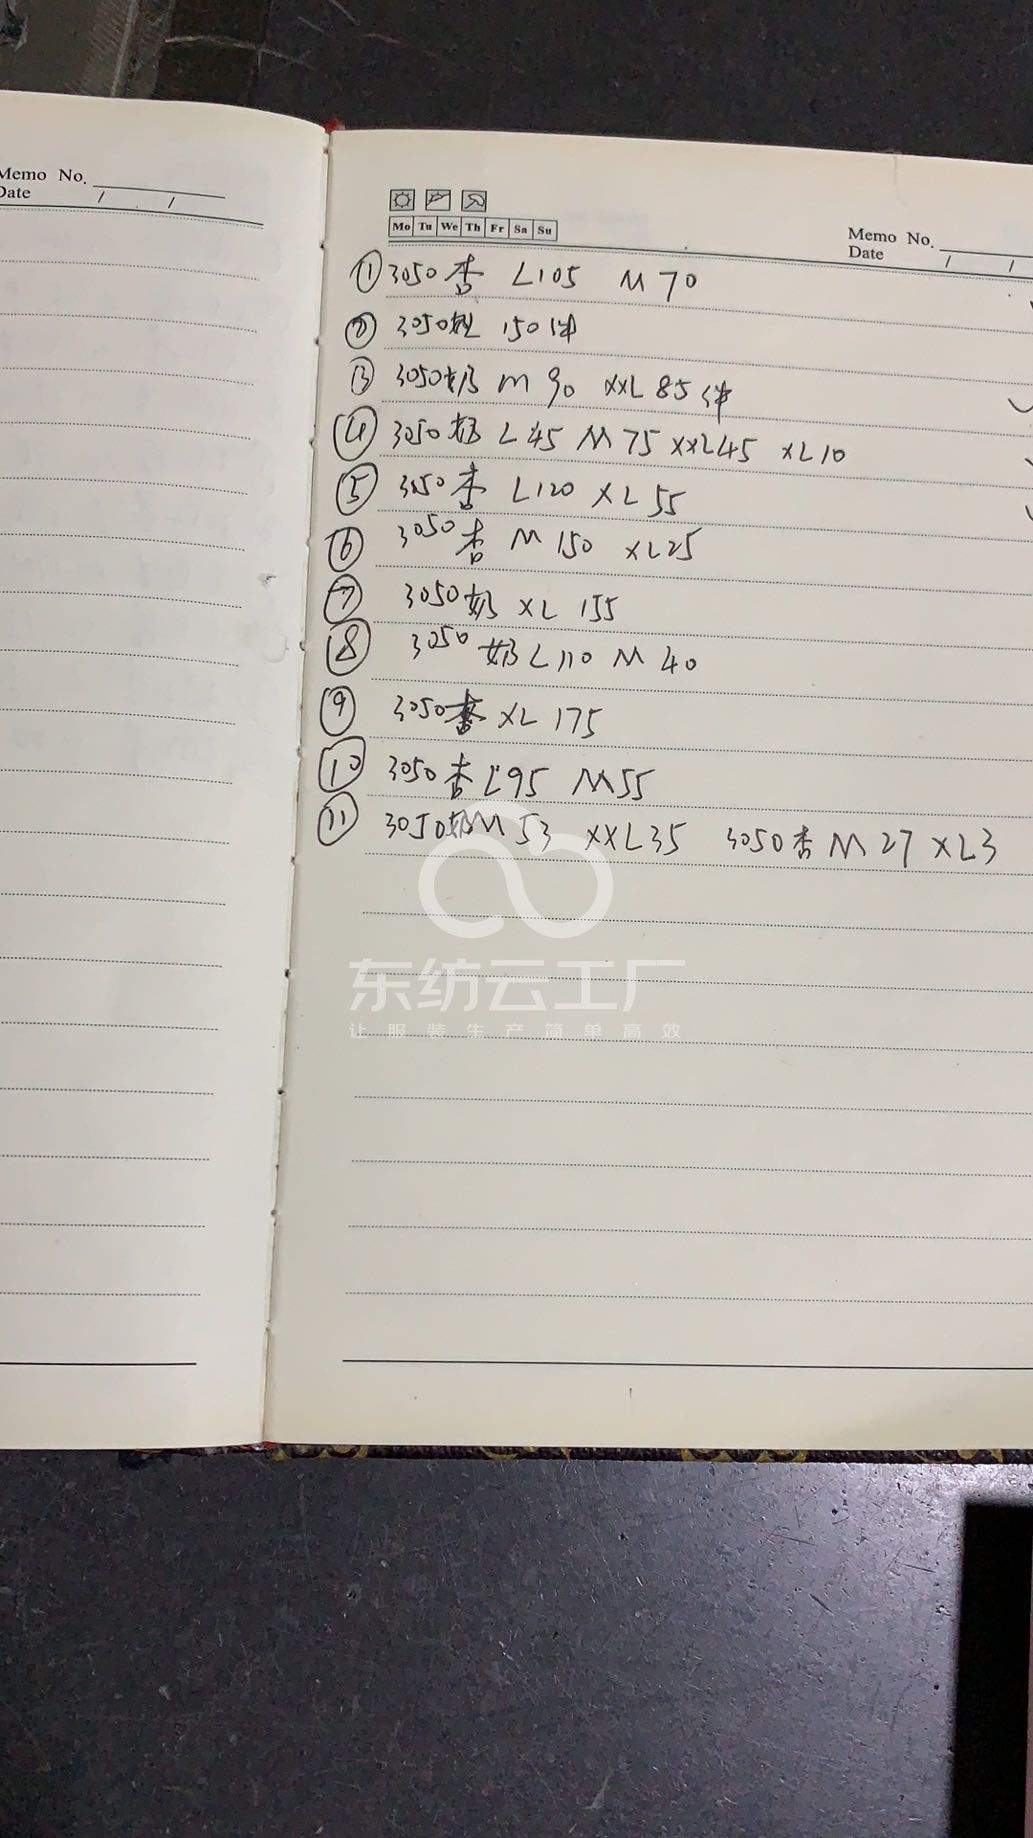 Memo No.
Date / /
Mo Tu We Th Fr Sa Su
Memo No.
Date / /
① 3050杏 L105 M70
② 3050 150件
③ 3050奶 M90 XXL85件
④ 3050奶 L45 M75 XXL45 XL10
⑤ 3050杏 L120 XL55
⑥ 3050杏 M150 XL25
⑦ 3050奶 XL 155
⑧ 3050奶 L110 M40
⑨ 3050杏 XL 175
⑩ 3050杏 L95 M55
⑪ 3050奶M53 XXL35 3050杏 M27 XL3
东纺云工厂
让服装生产简单高效